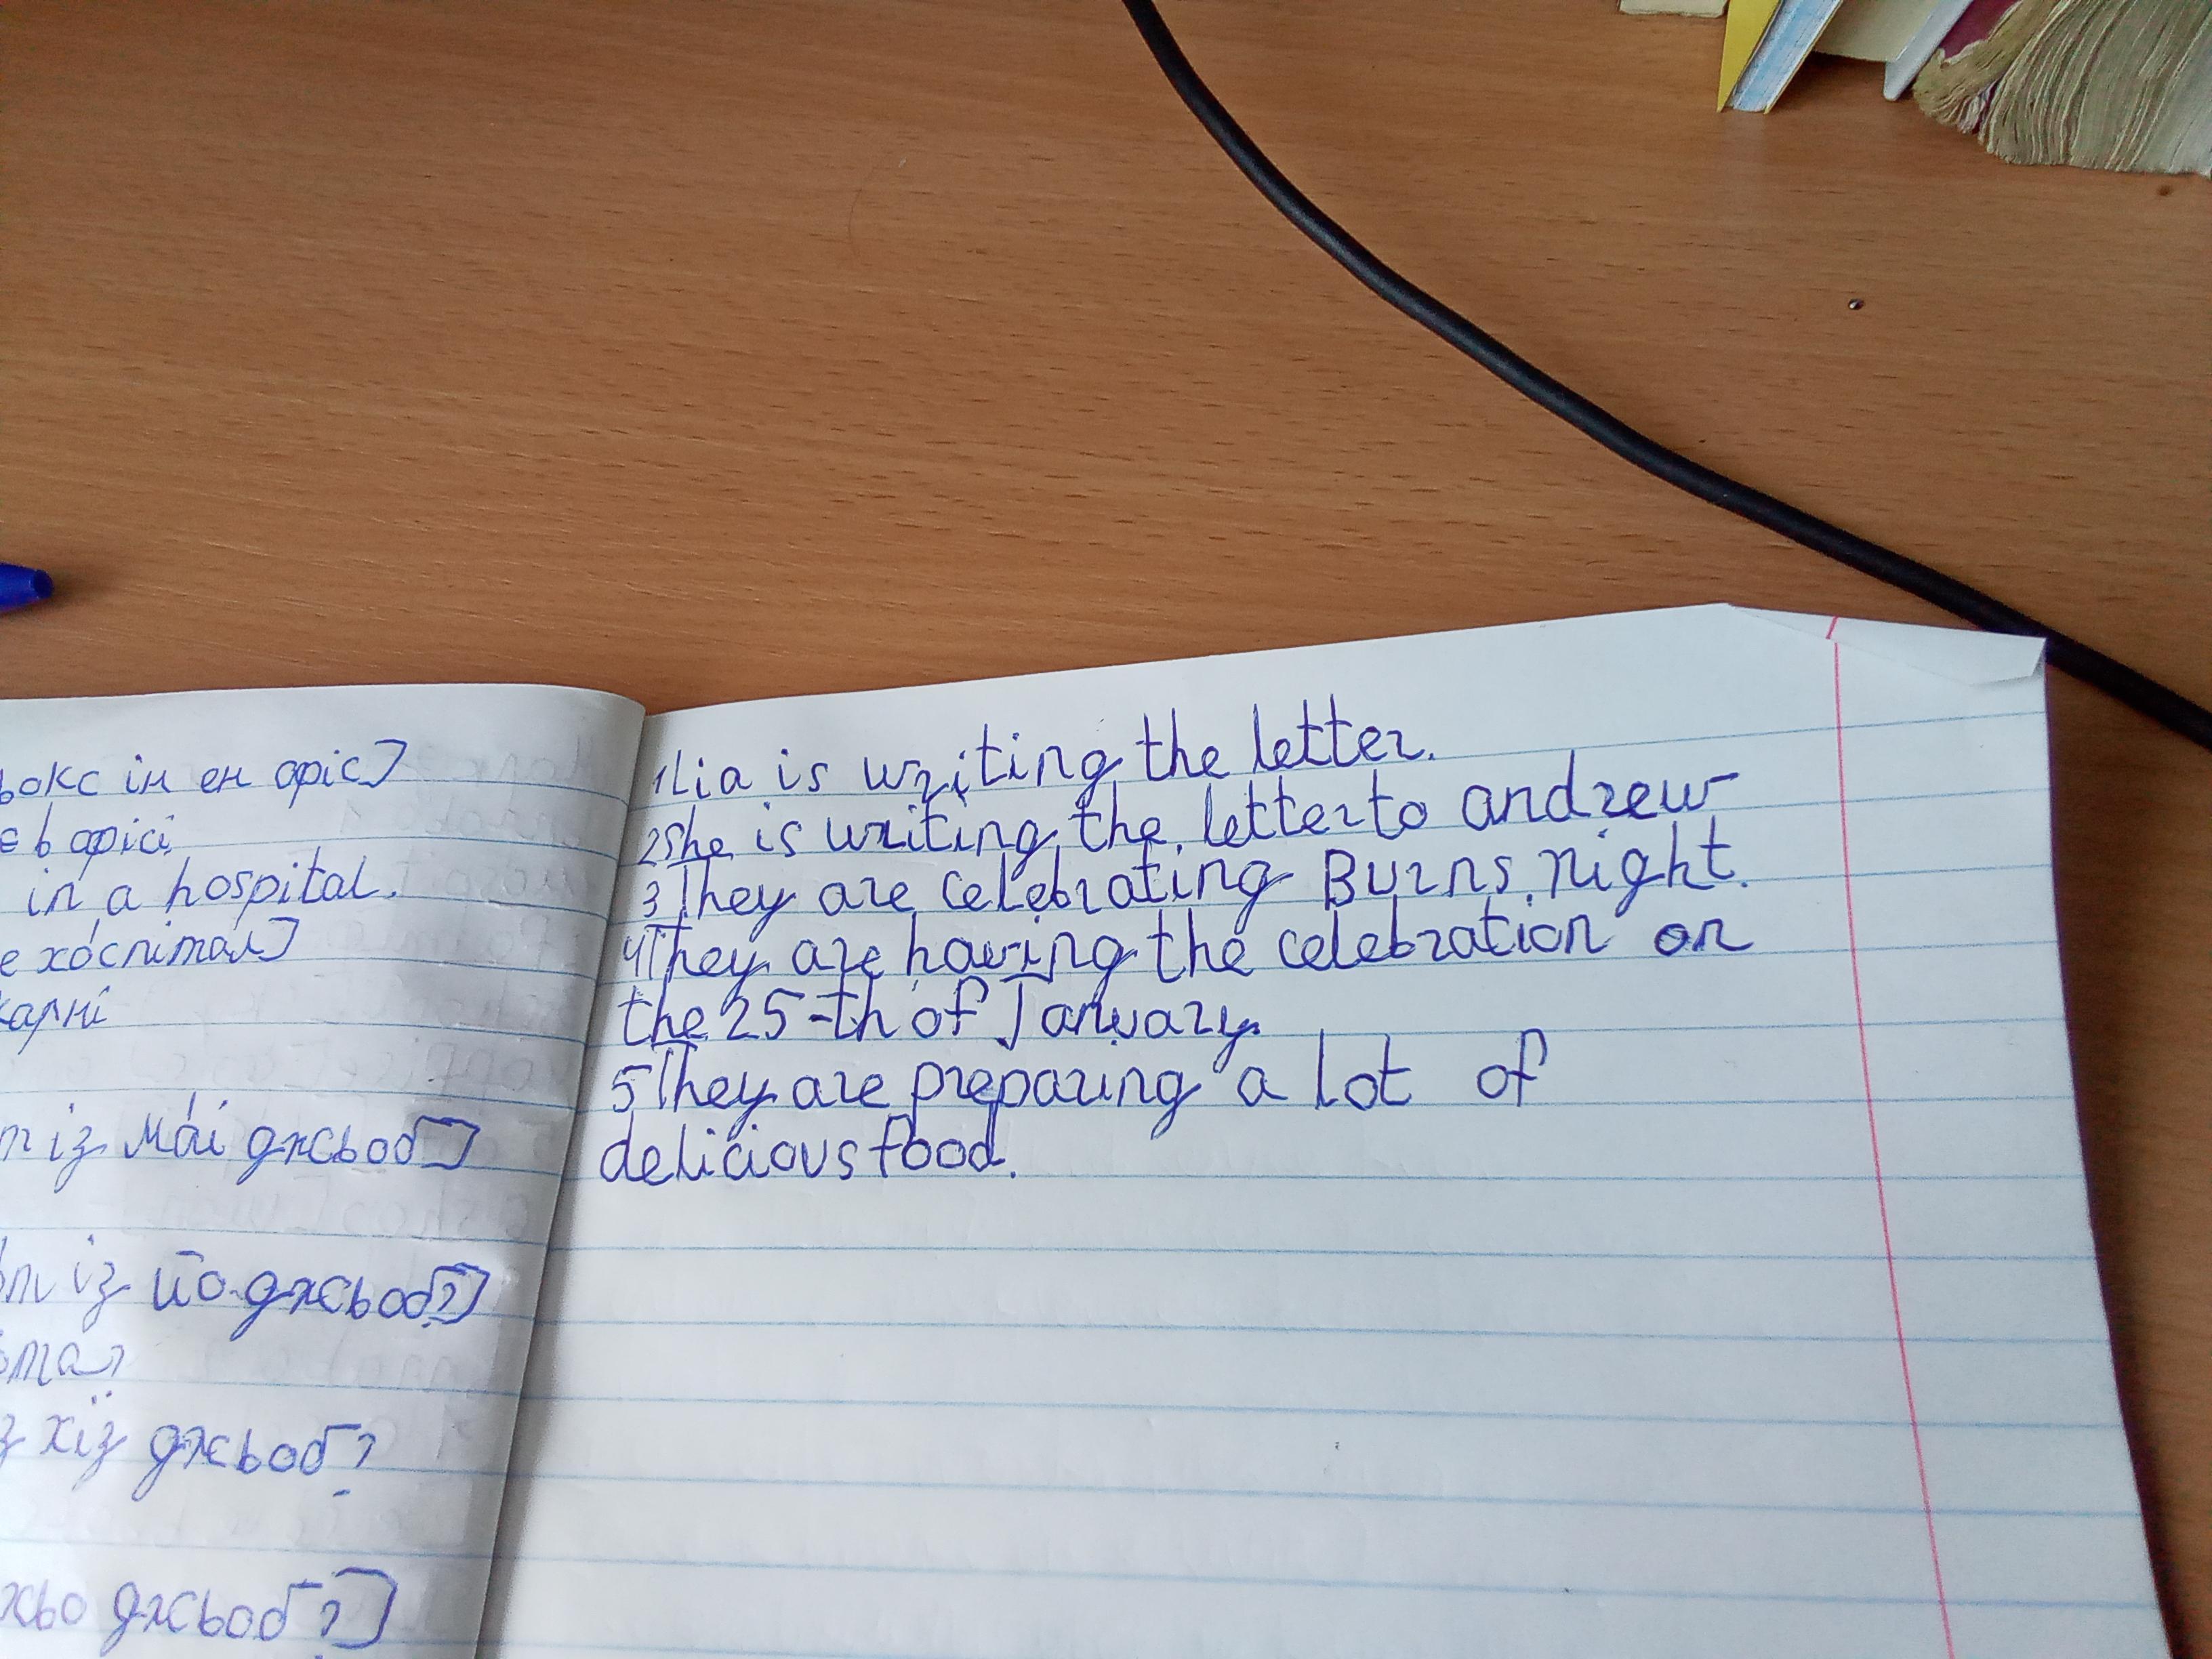 ьокс ін ен офіс]
є в офісі
in a hospital.
е хо́спітал]
карні
із ма́і джьоб]
із йо джьоб?]
ота?
з хіз джьоб?
джьоб?]
1Lia is writing the letter.
2She is writing the letter to andrew
3They are celebrating Burns night.
4They are having the celebration on
the 25-th of January.
5They are preparing a lot of
delicious food.